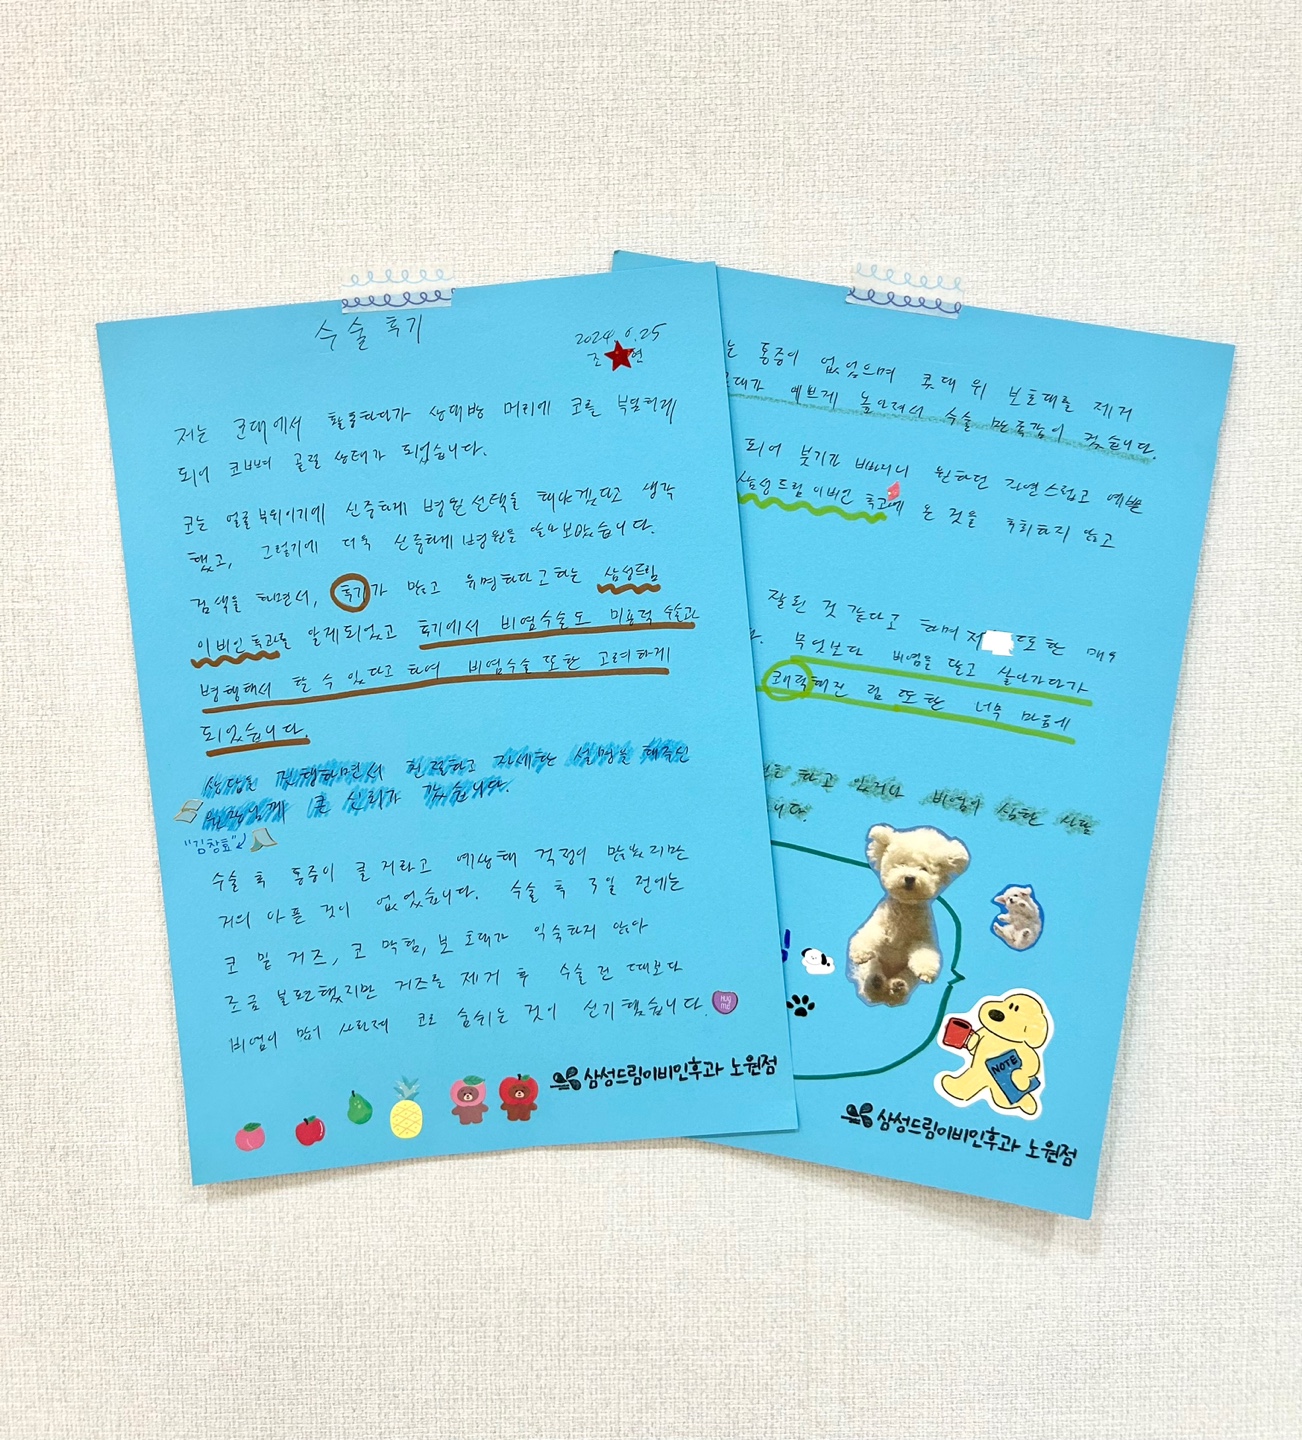 수술 후기
2024. 6. 25
조 현
저는 군대에서 활동하다가 상대방 머리에 코를 부딪히게
되어 코뼈 골절 상태가 되었습니다.
코는 얼굴 부위이기에 신중하게 병원선택을 해야겠다고 생각
했고, 그렇기에 더욱 신중하게 병원을 알아보았습니다.
검색을 하면서, 후기가 많고 유명하다고 하는 삼성드림
이비인후과를 알게되었고 후기에서 비염수술도 미용적 수술과
병행해서 할 수 있다고 하여 비염수술 또한 고려하게
되었습니다.
상담을 진행하면서 친절하고 자세한 설명을 해주신
원장님께 큰 신뢰가 갔습니다.
"김창효"
수술 후 통증이 클 거라고 예상해 걱정이 많았지만
거의 아픈 것이 없었습니다. 수술 후 3일 전에는
코 밑 거즈, 코 막힘, 보호대가 익숙하지 않아
조금 불편했지만 거즈를 제거 후 수술 전 때보다
비염이 많이 사라져 코로 숨쉬는 것이 신기했습니다.
HUG ME
삼성드림이비인후과 노원점
는 통증이 없었으며 콧대 위 보호대를 제거
콧대가 예쁘게 높아져서 수술 만족감이 컸습니다.
되어 붓기가 빠지니 원하던 자연스럽고 예쁜
삼성드림이비인후과에 온 것을 후회하지 않고
잘된 것 같다고 하며 저 또한 매우
무엇보다 비염을 달고 살아가다가
쾌적해진 점 또한 너무 마음에
하고 있거나 비염이 심한 사람
니다.
NOTE
삼성드림이비인후과 노원점